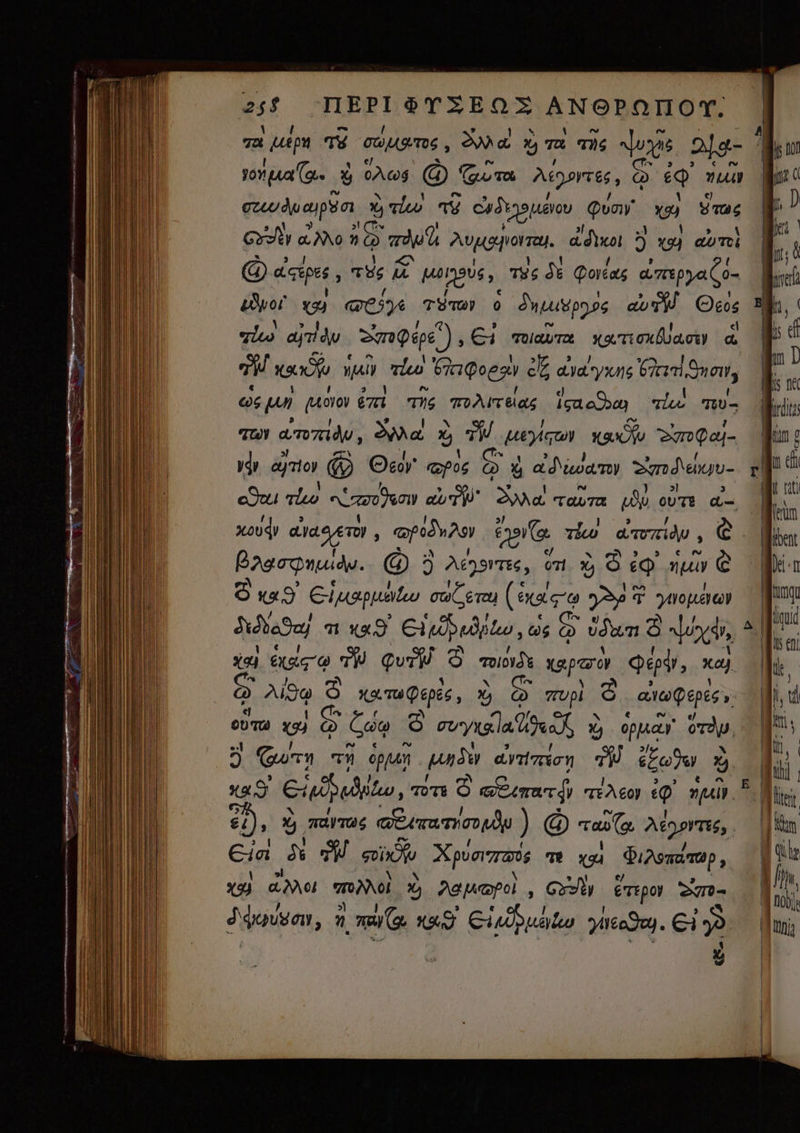 258 ΠΕΡΙ ΦΥΣΕΩΣ ΑΝΘΡΩΠΟΥ.
τὰ μέρη τοῦ σώματος, ἀλλὰ καὶ τὰ τῆς ψυχῆς δια-
νοήματα. καὶ ὅλως οἱ ταῦτα λέγοντες, τὸ ἐφ' ἡμῖν
συναναιροῦσι καὶ τὴν τοῦ ἐνδεχομένου φύσιν· καὶ οὕτως
οὐδὲν ἄλλο ἢ τὸ πᾶν λυμαίνονται. ἄδικοι δὲ καὶ αὐτοὶ
οἱ ἀστέρες, τοὺς μὲν μοιχοὺς, τοὺς δὲ φονέας ἀπεργαζό-
μενοι· καὶ πρό γε τούτων ὁ δημιουργὸς αὐτῶν Θεὸς
τὴν αἰτίαν ἀποφέρεται, εἰ τοιαῦτα κατεσκεύασεν ἃ
τῶν κακῶν ἡμῖν τὴν ἐπιφορὰν ἐξ ἀνάγκης ἐπιτίθησιν,
ὡς μὴ μόνον ἐπὶ τῆς πολιτείας ἵστασθαι τὴν τού-
των ἀτοπίαν, ἀλλὰ καὶ τῶν μεγίστων κακῶν ἀποφαί-
νειν αἴτιον τὸν Θεόν· πρὸς τὸ καὶ ἀδύνατον ἀποδείκνυ-
σθαι τὴν ὑπόθεσιν αὐτῶν· ἀλλὰ ταῦτα μὲν οὔτε ἀ-
κούειν ἀνασχετὸν, πρόδηλον ἔχοντα τὴν ἀτοπίαν, καὶ
βλασφημίαν. οἱ δὲ λέγοντες, ὅτι καὶ τὸ ἐφ' ἡμῖν καὶ
τὸ καθ' εἱμαρμένην σώζεται (ἑκάστῳ γὰρ τῶν γινομένων
δίδοσθαί τι καθ' εἱμαρμένην, ὡς τῷ ὕδατι τὸ ψύχειν,
καὶ ἑκάστῳ τῶν φυτῶν τὸ τοιόνδε καρπὸν φέρειν, καὶ
τῷ λίθῳ τὸ κατωφερὲς, καὶ τῷ πυρὶ τὸ ἀνωφερὲς,
οὕτω καὶ τῷ ζώῳ τὸ συγκατατίθεσθαι καὶ ὁρμᾶν· ὅταν
δὲ ταύτῃ τῇ ὁρμῇ μηδὲν ἀντιπέσῃ τῶν ἔξωθεν καὶ
καθ' εἱμαρμένην, τότε τὸ περιπατεῖν τέλεον ἐφ' ἡμῖν
εἶναι, καὶ πάντως περιπατήσομεν) οἱ ταῦτα λέγοντες,
εἰσὶ δὲ τῶν στοϊκῶν Χρύσιππός τε καὶ Φιλοπάτωρ,
καὶ ἄλλοι πολλοὶ καὶ λαμπροὶ, οὐδὲν ἕτερον ἀπο-
δεικνύουσιν, ἢ πάντα καθ' εἱμαρμένην γίνεσθαι. Εἰ γὰρ
καὶ